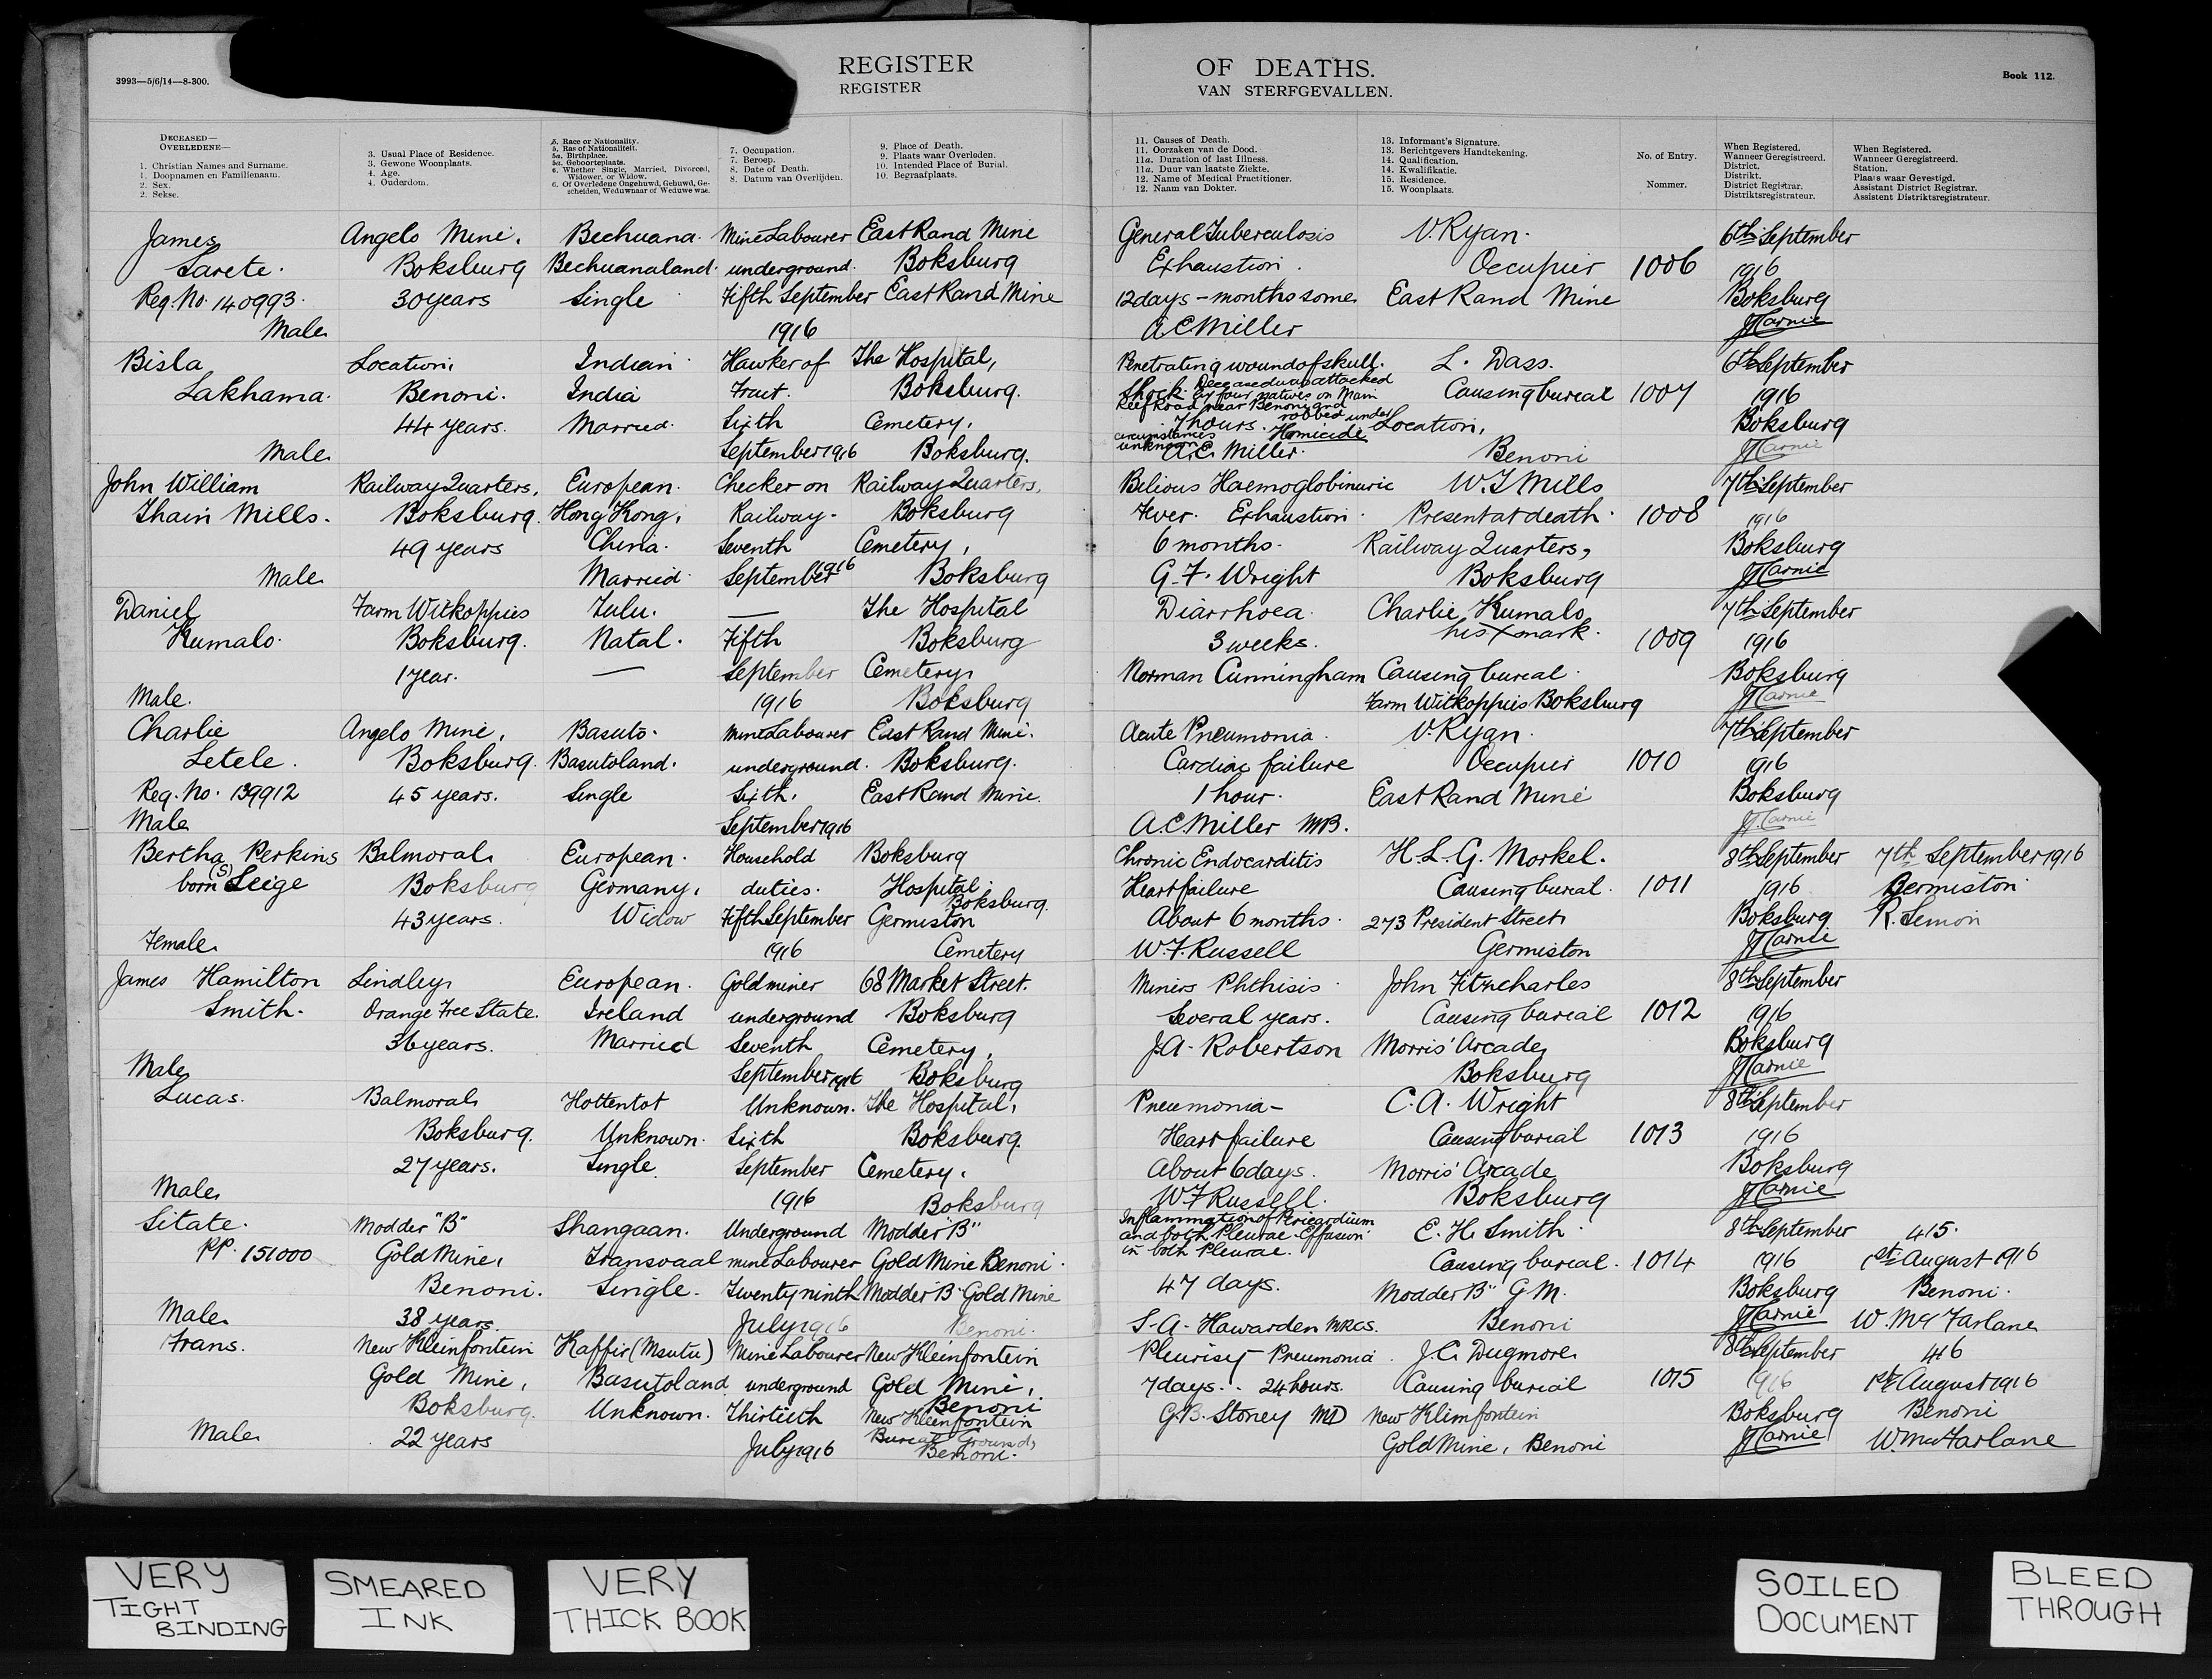 3993—5/6/14—8-300.
REGISTER
REGISTER
OF DEATHS.
VAN STERFGEVALLEN.
Book 112.
DECEASED—
OVERLEDENE—
1. Christian Names and Surname.
1. Doopnamen en Familienaam.
2. Sex.
2. Sekse.
3. Usual Place of Residence.
3. Gewone Woonplaats.
4. Age.
4. Ouderdom.
5. Race or Nationality.
5. Ras of Nationaliteit.
5a. Birthplace.
5a. Geboorteplaats.
6. Whether Single, Married, Divorced, Widower, or Widow.
6. Of Overledene Ongehuwd, Gehuwd, Gescheiden, Weduwnaar of Weduwe was.
7. Occupation.
7. Beroep.
8. Date of Death.
8. Datum van Overlijden.
9. Place of Death.
9. Plaats waar Overleden.
10. Intended Place of Burial.
10. Begraafplaats.
11. Causes of Death.
11. Oorzaken van de Dood.
11a. Duration of last Illness.
11a. Duur van laatste Ziekte.
12. Name of Medical Practitioner.
12. Naam van Dokter.
13. Informant's Signature.
13. Berichtgevers Handtekening.
14. Qualification.
14. Kwalifikatie.
15. Residence.
15. Woonplaats.
No. of Entry.
Nommer.
When Registered.
Wanneer Geregistreerd.
District.
Distrikt.
District Registrar.
Distriktsregistrateur.
When Registered.
Wanneer Geregistreerd.
Station.
Plaats waar Gevestigd.
Assistant District Registrar.
Assistent Distriktsregistrateur.
James Angelo Mine, Bechuana. Mine Labourer East Rand Mine General Tuberculosis V. Ryan. 6th September
Sarete. Boksburg Bechuanaland. underground. Boksburg Exhaustion. Occupier 1006 1916
Reg. No. 140993. 30 years Single Fifth September East Rand Mine 12 days – months some East Rand Mine Boksburg
Male 1916 A C Miller
Bisla Location, Indian Hawker of The Hospital, Penetrating wound of skull. L. Dass. 6th September
Lakhama. Benoni. India Fruit. Boksburg. Shock. Deceased was attacked by four natives on Main Causing burial 1007 1916
44 years. Married. Sixth Cemetery, Reef Road near Benoni and robbed under 7 hours. Location, Boksburg
Male September 1916 Boksburg. circumstances unknown Homicide A.C. Miller. Benoni
John William Railway Quarters, European. Checker on Railway Quarters, Bilious Haemoglobinuric W. T Mills 7th September
Thain Mills. Boksburg. Hong Kong, Railway. Boksburg Fever. Exhaustion. Present at death. 1008 1916
49 years China. Seventh Cemetery, 6 months. Railway Quarters, Boksburg
Male Married. September 1916 Boksburg G. F. Wright Boksburg
Daniel Farm Witkoppies Zulu. — The Hospital Diarrhoea. Charlie Kumalo 7th September
Kumalo. Boksburg. Natal. Fifth Boksburg 3 weeks. his X mark. 1009 1916
1 year. — September Cemetery Norman Cunningham Causing burial. Boksburg
Male. 1916 Boksburg Farm Witkoppies Boksburg
Charlie Angelo Mine, Basuto. Mine Labourer East Rand Mine. Acute Pneumonia. V. Ryan. 7th September
Letele. Boksburg. Basutoland. underground. Boksburg. Cardiac failure Occupier 1010 1916
Reg. No. 139912 45 years. Single Sixth. East Rand Mine. 1 hour. East Rand Mine Boksburg
Male September 1916 A. C Miller MB.
Bertha Perkins Balmoral European. Household Boksburg Chronic Endocarditis H. L. G. Morkel. 8th September 7th September 1916
born (S) Leige Boksburg Germany, duties. Hospital. Boksburg. Heart failure Causing burial. 1011 1916 Germiston
43 years. Widow Fifth September Germiston About 6 months. 273 President Street Boksburg
Female 1916 Cemetery W. F. Russell Germiston
James Hamilton Lindley European. Gold miner 68 Market Street. Miners Phthisis. John Fitzcharles 8th September
Smith. Orange Free State. Ireland underground Boksburg Several years. Causing burial 1012 1916
36 years. Married Seventh Cemetery, J. A. Robertson Morris' Arcade, Boksburg
Male September 1916 Boksburg Boksburg
Lucas. Balmoral Hottentot Unknown. The Hospital, Pneumonia – C. A. Wright 8th September
Boksburg. Unknown. Sixth Boksburg. Heart failure Causing burial 1013 1916
27 years. Single September Cemetery. About 6 days. Morris' Arcade Boksburg
Male 1916 Boksburg W F Russell. Boksburg
Sitate. Modder "B" Shangaan. Underground Modder "B" Inflammation of Pericardium and both Pleurae Effusion in both Pleurae. E. H. Smith. 8th September 415.
PP. 151000 Gold Mine, Transvaal mine Labourer Gold Mine Benoni. Causing burial. 1014 1916 1st August 1916
Benoni. Single. Twenty ninth Modder B. Gold Mine 47 days. Modder B" G. M. Boksburg Benoni.
Male 38 years. July 1916 Benoni. S. A. Hawarden MRCS. Benoni W. Mc Farlane
Frans. New Kleinfontein Kaffir (Msutu) Mine Labourer New Kleinfontein Pleurisy Pneumonia. J. C. Dugmore 8th September 416
Gold Mine, Basutoland underground Gold Mine, 7 days. . 24 hours. Causing burial 1015 1916 1st August 1916
Boksburg. Unknown. Thirtieth Benoni New Kleinfontein G. B. Stoney MD New Kleinfontein Boksburg Benoni
Male 22 years July 1916 Burial Ground, Benoni. Gold Mine, Benoni W. Mac Farlane
VERY
TIGHT
BINDING
SMEARED
INK
VERY
THICK BOOK
SOILED
DOCUMENT
BLEED
THROUGH